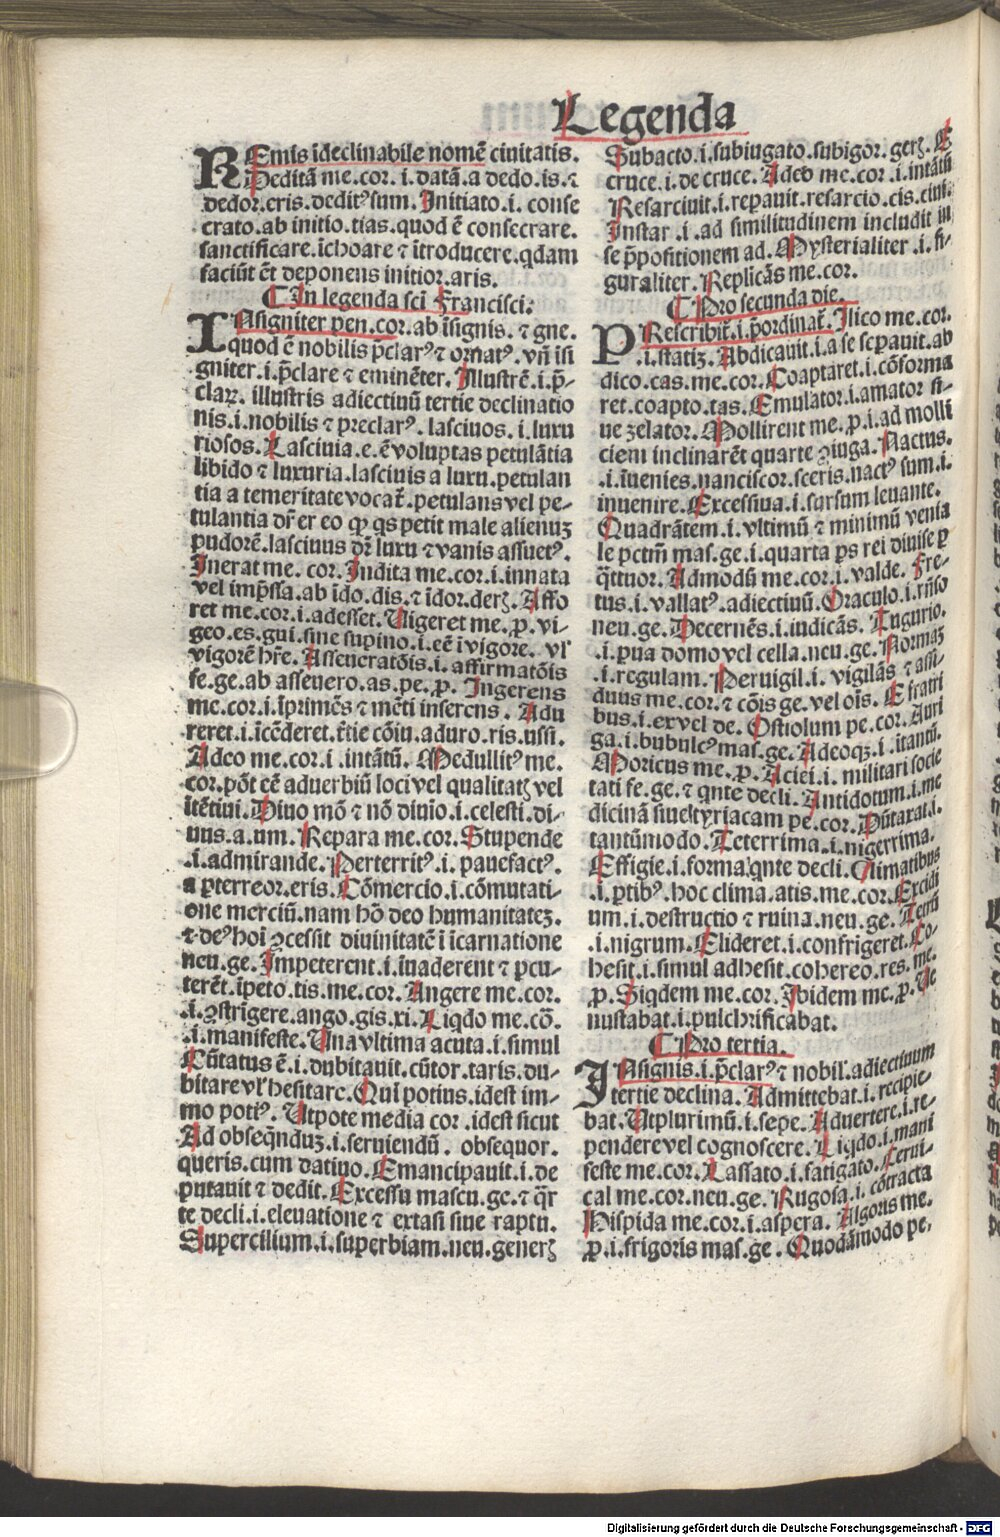 Legenda
REmis ĩdeclinabile nomẽ ciuitatis.
Deditã me.cor.i.datã.a dedo.is.⁊
dedor.eris.deditꝰsum. Initiato.i. conse
crato.ab initio.tias.quod ẽ consecrare.
sanctificare.ĩchoare ⁊ ĩtroducere.qdam
faciũt ẽt deponens initior.aris.
¶ In legenda sci Francisci.
INsigniter pen.cor.ab ĩsignis. ⁊ gne.
quod ẽ nobilis p̃clarꝰ ⁊ ornatꝰ. vñ isi
gniter.i.p̃clare ⁊ eminẽter. Illustrẽ.i.p̃-
clarꝝ. illustris adiectiuũ tertie declinatio
nis.i.nobilis ⁊ preclarꝰ. lasciuos.i.luxu
riosos. Lasciuia.e.ẽ voluptas petulãtia
libido ⁊ luxuria.lasciuis a luxu.petulan
tia a temeritate vocat̃.petulans vel pe-
tulantia dr̃ er eo ꝙ qs petit male alienuz
pudorẽ.lasciuus dr̃ luxu ⁊ vanis assuetꝰ.
Inerat me. cor. Indita me.cor.i.innata
vel imp̃ssa.ab ĩdo.dis.⁊ ĩdor.derꝫ. Affo
ret me.cor.i.adesset. Uigeret me.ꝑ.vi-
geo.es.gui.sine supino.i.eẽ ĩ vigore. vl'
vigorẽ hr̃e. Asseueratõis.i.affirmatõis
fe.ge.ab asseuero.as.pe.ꝑ. Ingerens
me.cor.i.ĩprimẽs ⁊ mẽti inserens. Adu
reret.i.ĩcẽderet.t̃tie cõiu.aduro.ris.ussi.
Adeo me.cor.i.intãtũ. Medullitꝰ me.
cor.põt eẽ aduerbiũ loci vel qualitatꝫ vel
ĩtẽtiui. Diuo mõ ⁊ nõ diuio.i.celesti.di-
uus.a.um. Repara me.cor. Stupende
.i.admirande. Perterritꝰ.i.pauefactꝰ.
a ꝑterreor.eris. Cõmercio.i.cõmutati-
one merciũ.nam hõ deo humanitatez.
⁊ deꝰ hoĩ ꝯcessit diuinitatẽ ĩ ĩcarnatione
neu.ge. Impeterent.i.ĩuaderent ⁊ ꝑcu-
terẽt.ĩpeto.tis.me.cor. Angere me.cor.
.i.ꝯstrigere.ango.gis.xi. Liqdo me.cõ.
.i.manifeste. Una vltima acuta.i.simul
Cũtatus ẽ.i.dubitauit.cũtor.taris.du-
bitare vl' hesitare. Quĩ potius.idest im-
mo potiꝰ. Utpote media cor.idest sicut
Ad obseq̃nduz.i.seruiendũ. obsequor.
queris.cum datiuo. Emancipauit.i.de
putauit ⁊ dedit. Excessu mascu.ge.⁊ q̃r
te decli.i.eleuatione ⁊ extasi siue raptu.
Supercilium.i.superbiam.neu.generꝫ
Subacto.i.subiugato.subigor.gerꝫ. E
cruce.i.de cruce. Adeo me.cor.i.intãtũ
Resarciuit.i.reparauit.resarcio.cis.ciui.
Instar.i.ad similitudinem includit in
se p̃positionem ad. Mysterialiter.i.fi-
guraliter. Replicãs me.cor.
¶ Pro secunda die.
PRescribit̃.i.p̃ordinat̃. Ilico me.cor.
.i.statiz. Abdicauit.i.a se sepauit.ab
dico.cas.me.cor. Coaptaret.i.cõforma
ret.coapto.tas. Emulator.i.amator si-
ue zelator. Mollirent me.ꝑ.i.ad molli
ciem inclinarẽt quarte ꝯiuga. Nactus.
.i.ĩuenies.nanciscor.sceris.nactꝰ sum.i.
inuenire. Excessiua.i.sursum leuante.
Quadrãtem.i.vltimũ ⁊ minimũ venia
le pctm̃ mas.ge.i.quarta ꝑs rei diuise ꝑ
q̃ttuor. Admodũ me.cor.i.valde. Fre-
tus.i.vallatꝰ.adiectiuũ. Oraculo.i.rñso
neu.ge. Decernẽs.i.iudicãs. Tugurio.
.i.ꝑua domo vel cella.neu.ge. Normaz
.i.regulam. Peruigil.i. vigilãs ⁊ assi-
duus me.cor.⁊ cõis ge.vel oĩs. E fratri
bus.i.ex vel de. Ostiolum pe.cor. Auri
ga.i.bubulcꝰ mas.ge. Adeoqz.i.itantũ.
Moricus me.ꝑ. Aciei.i. militari socie
tati fe.ge.⁊ qnte decli. Antidotum.i.me
dicinã siue tyriacam pe.cor. Dũtaxat.i.
tantũmodo. Teterrima.i.nigerrima.
Effigie.i.forma qnte decli. Climatibus
.i.ꝑtibꝰ.hoc clima.atis.me.cor. Excidi
um.i.destructio ⁊ ruina.neu.ge. Tetrũ
.i.nigrum. Elideret.i.confrigeret. Co-
hesit.i.simul adhesit.cohereo.res.me.
ꝑ. Siqdem me.cor. Ibidem me.ꝑ. Ue
nustabat.i.pulchrificabat.
¶ Pro tertia.
INsignis.i.p̃clarꝰ ⁊ nobil'.adiectinum
tertie declina. Admittebat.i.recipie-
bat. Utplurimũ.i.sepe. Aduertere.i.re-
pendere vel cognoscere. Liqdo.i.mani
feste me.cor. Lassato.i.fatigato. Cerui-
cal me.cor.neu.ge. Rugosa.i.cõtracta
Hispida me.cor.i.aspera. Algoris me.
ꝑ.i.frigoris mas.ge. Quodãmodo pe,
Digitalisierung gefördert durch die Deutsche Forschungsgemeinschaft - DFG